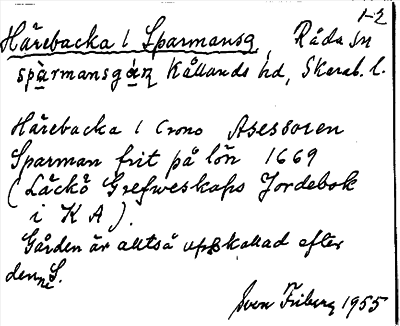 1-2
Härebacka l Sparmansg, Råda sn
spàrmansgán Kållands hd, Skarab. l.
Härebacka l Crono Asessoren
Sparman frit på lön 1669
(Läckö Grefweskaps Jordebok
i K A).
Gården är alltså uppkallad efter
denne S.
Sven Friberg 1955